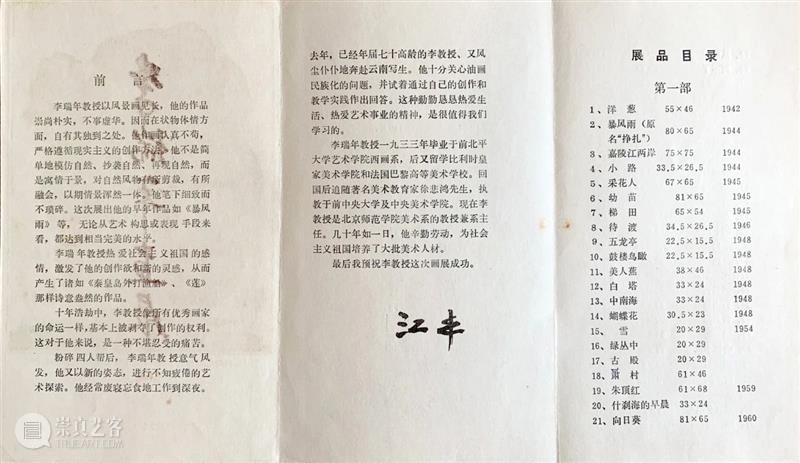 前言
李瑞年教授以风景画见长，他的作品
崇尚朴实，不事虚华。因而在状物体情方
面，自有其独到之处。他作画认真不苟，
严格遵循现实主义的创作方法，他不是简
单地模仿自然、抄袭自然、再现自然，而
是寓情于景，对自然风物有所剪裁，有所
融会，以期情景浑然一体。他笔下细致而
不琐碎。这次展出他的早年作品如《暴风
雨》等，无论从艺术构思或表现手段来
看，都达到相当完美的水平。
李瑞年教授热爱社会主义祖国的感
情，激发了他的创作欲和新的灵感，从而
产生了诸如《秦皇岛外打渔船》、《莲》
那样诗意盎然的作品。
十年浩劫中，李教授像所有优秀画家
的命运一样，基本上被剥夺了创作的权利。
这对于他来说，是一种不堪忍受的痛苦。
粉碎四人帮后，李瑞年教授意气风
发，他又以新的姿态，进行不知疲倦的艺
术探索。他经常废寝忘食地工作到深夜。
去年，已经年届七十高龄的李教授、又风
尘仆仆地奔赴云南写生。他十分关心油画
民族化的问题，并试着通过自己的创作和
教学实践作出回答。这种勤勤恳恳热爱生
活、热爱艺术事业的精神，是很值得我们
学习的。
李瑞年教授一九三三年毕业于前北平
大学艺术学院西画系，后又留学比利时皇
家美术学院和法国巴黎高等美术学校。回
国后追随著名美术教育家徐悲鸿先生，执
教于前中央大学及中央美术学院。现在李
教授是北京师范学院美术系的教授兼系主
任。几十年如一日，他辛勤劳动，为社会
主义祖国培养了大批美术人材。
最后我预祝李教授这次画展成功。
江丰
展品目录
第一部
1、洋葱 55×46 1942
2、暴风雨（原名“挣扎”） 80×65 1944
3、嘉陵江两岸 75×75 1944
4、小路 33.5×26.5 1944
5、采花人 67×65 1945
6、幼苗 81×65 1945
7、梯田 65×54 1945
8、待渡 34.5×26.5 1946
9、五龙亭 22.5×15.5 1948
10、鼓楼鸟瞰 22.5×15.5 1948
11、美人蕉 38×46 1948
12、白塔 33×24 1948
13、中南海 33×24 1948
14、蝴蝶花 30.5×23 1948
15、雪 20×29 1954
16、绿丛中 20×29
17、古殿 20×29
18、肃村 61×46
19、朱顶红 61×68 1959
20、什刹海的早晨 33×24
21、向日葵 81×65 1960
崇真艺客
TRUEART.COM